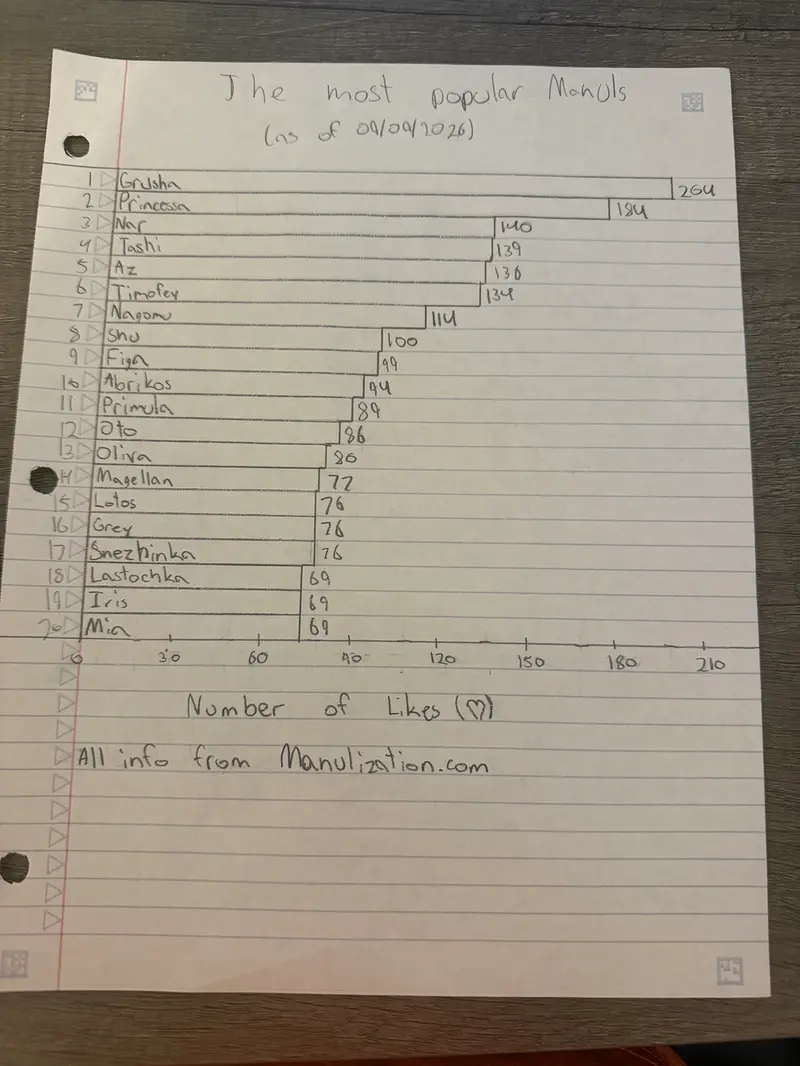 The most popular Manuls
(as of 09/09/2026)
1 Grusha 204
2 Princessa 184
3 Nar 140
4 Tashi 139
5 Az 136
6 Timofey 134
7 Nagomu 114
8 Shu 100
9 Figa 99
10 Abrikos 94
11 Primula 89
12 Oto 86
13 Oliva 80
14 Magellan 77
15 Lotos 76
16 Grey 76
17 Snezhinka 76
18 Lastochka 69
19 Iris 69
20 Mia 69
0 30 60 90 120 150 180 210
Number of Likes (♡)
All info from Manulization.com